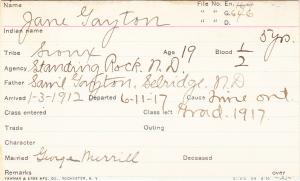 Name Jane Gayton File No. En.
" " G. 646
Indian name " " D. 5 yrs.
Tribe Sioux Age 19 Blood 1/2
Agency Standing Rock, N.D.
Father Saml Gayton, Selridge, N.D
Arrived 1-3-1912 Departed 6-11-17 Cause Time out
Class entered Class left Grad. 1917.
Trade Outing
Character
Married George Merrill Deceased
Remarks over